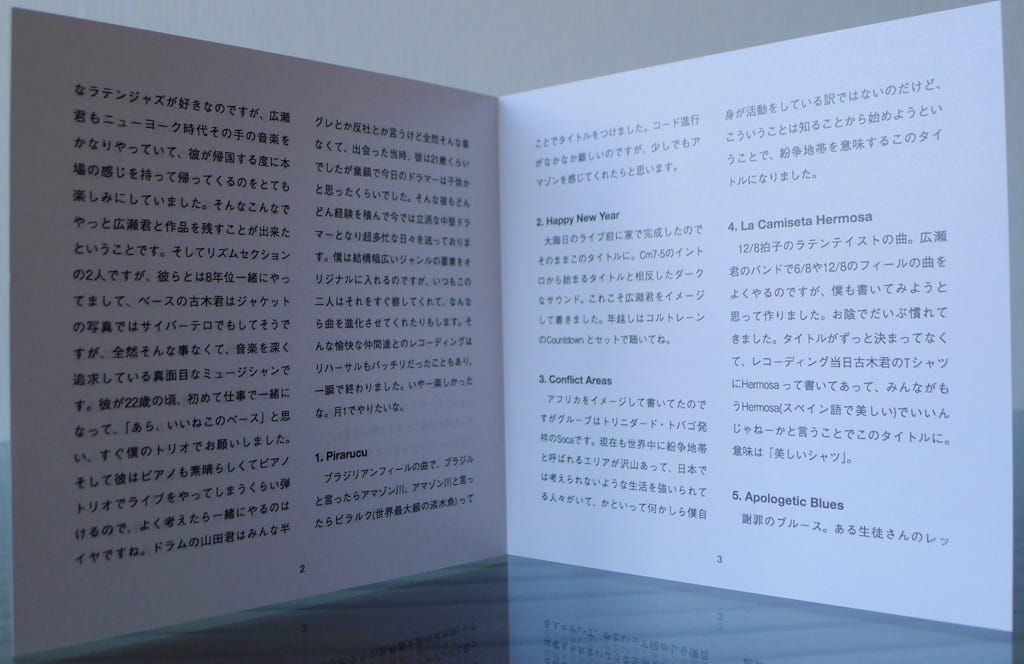 なラテンジャズが好きなのですが、広瀬
君もニューヨーク時代その手の音楽を
かなりやっていて、彼が帰国する度に本
場の感じを持って帰ってくるのをとても
楽しみにしていました。そんなこんなで
やっと広瀬君と作品を残すことが出来た
ということです。そしてリズムセクション
の2人ですが、彼らとは8年位一緒にやっ
てまして、ベースの古木君はジャケット
の写真ではサイバーテロでもしてそうで
すが、全然そんな事なくて、音楽を深く
追求している真面目なミュージシャンで
す。彼が22歳の頃、初めて仕事で一緒に
なって、「あら、いいねこのベース」と思
い、すぐ僕のトリオでお願いしました。
そして彼はピアノも素晴らしくてピアノ
トリオでライブをやってしまうくらい弾
けるので、よく考えたら一緒にやるのは
イヤですね。ドラムの山田君はみんな半
グレとか反社とか言うけど全然そんな事
なくて、出会った当時、彼は21歳くらい
でしたが童顔で今日のドラマーは子供か
と思ったくらいでした。そんな彼もどん
どん経験を積んで今では立派な中堅ドラ
マーとなり超多忙な日々を送っておりま
す。僕は結構幅広いジャンルの要素をオ
リジナルに入れるのですが、いつもこの
二人はそれをすぐ察してくれて、なんな
ら曲を進化させてくれたりもします。そ
んな愉快な仲間達とのレコーディングは
リハーサルもバッチリだったこともあり、
一瞬で終わりました。いやー楽しかった
な。月1でやりたいな。
1. Pirarucu
ブラジリアンフィールの曲で、ブラジル
と言ったらアマゾン川、アマゾン川と言っ
たらピラルク(世界最大級の淡水魚)って
2
ことでタイトルをつけました。コード進行
がなかなか難しいのですが、少しでもア
マゾンを感じてくれたらと思います。
2. Happy New Year
大晦日のライブ前に家で完成したので
そのままこのタイトルに。Cm7-5のイント
ロから始まるタイトルと相反したダーク
なサウンド。これこそ広瀬君をイメージ
して書きました。年越しはコルトレーン
のCountdownとセットで聴いてね。
3. Conflict Areas
アフリカをイメージして書いてたので
すがグルーブはトリニダード・トバゴ発
祥のSocaです。現在も世界中に紛争地帯
と呼ばれるエリアが沢山あって、日本で
は考えられないような生活を強いられて
る人々がいて、かといって何かしら僕自
身が活動をしている訳ではないのだけど、
こういうことは知ることから始めようとい
うことで、紛争地帯を意味するこのタイ
トルになりました。
4. La Camiseta Hermosa
12/8拍子のラテンテイストの曲。広瀬
君のバンドで6/8や12/8のフィールの曲を
よくやるのですが、僕も書いてみようと
思って作りました。お陰でだいぶ慣れて
きました。タイトルがずっと決まってなく
て、レコーディング当日古木君のTシャツ
にHermosaって書いてあって、みんながも
うHermosa(スペイン語で美しい)でいいん
じゃねーかと言うことでこのタイトルに。
意味は「美しいシャツ」。
5. Apologetic Blues
謝罪のブルース。ある生徒さんのレッ
3